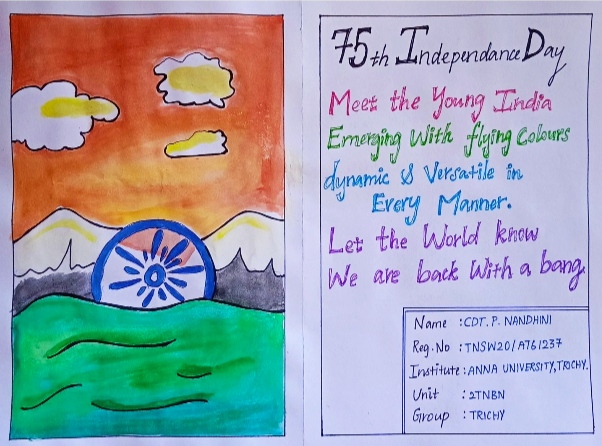 75th Independance Day
Meet the Young India
Emerging With flying Colours
dynamic & Versatile in
Every Manner.
Let the World know
We are back With a bang.
Name : CDT. P. NANDHINI
Reg.No : TNSW20/A761237
Institute : ANNA UNIVERSITY, TRICHY.
Unit : 2TNBN
Group : TRICHY